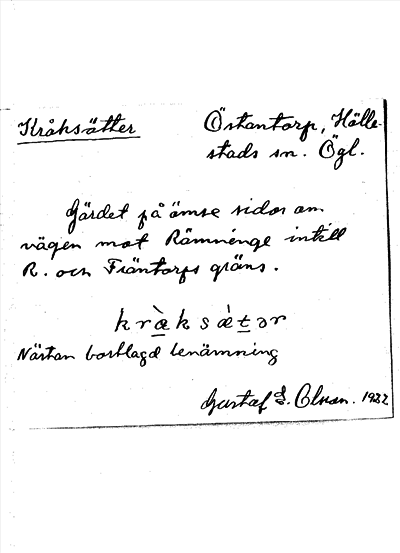 Kråksätter
Östantorp, Hälle-
stads sn. Ögl.
Gärdet på ömse sidor om
vägen mot Rämninge intill
R. och Fräntorps gräns.
kràksǽtər
Nästan bortlagd benämning
Gustaf E. Olsson. 1932